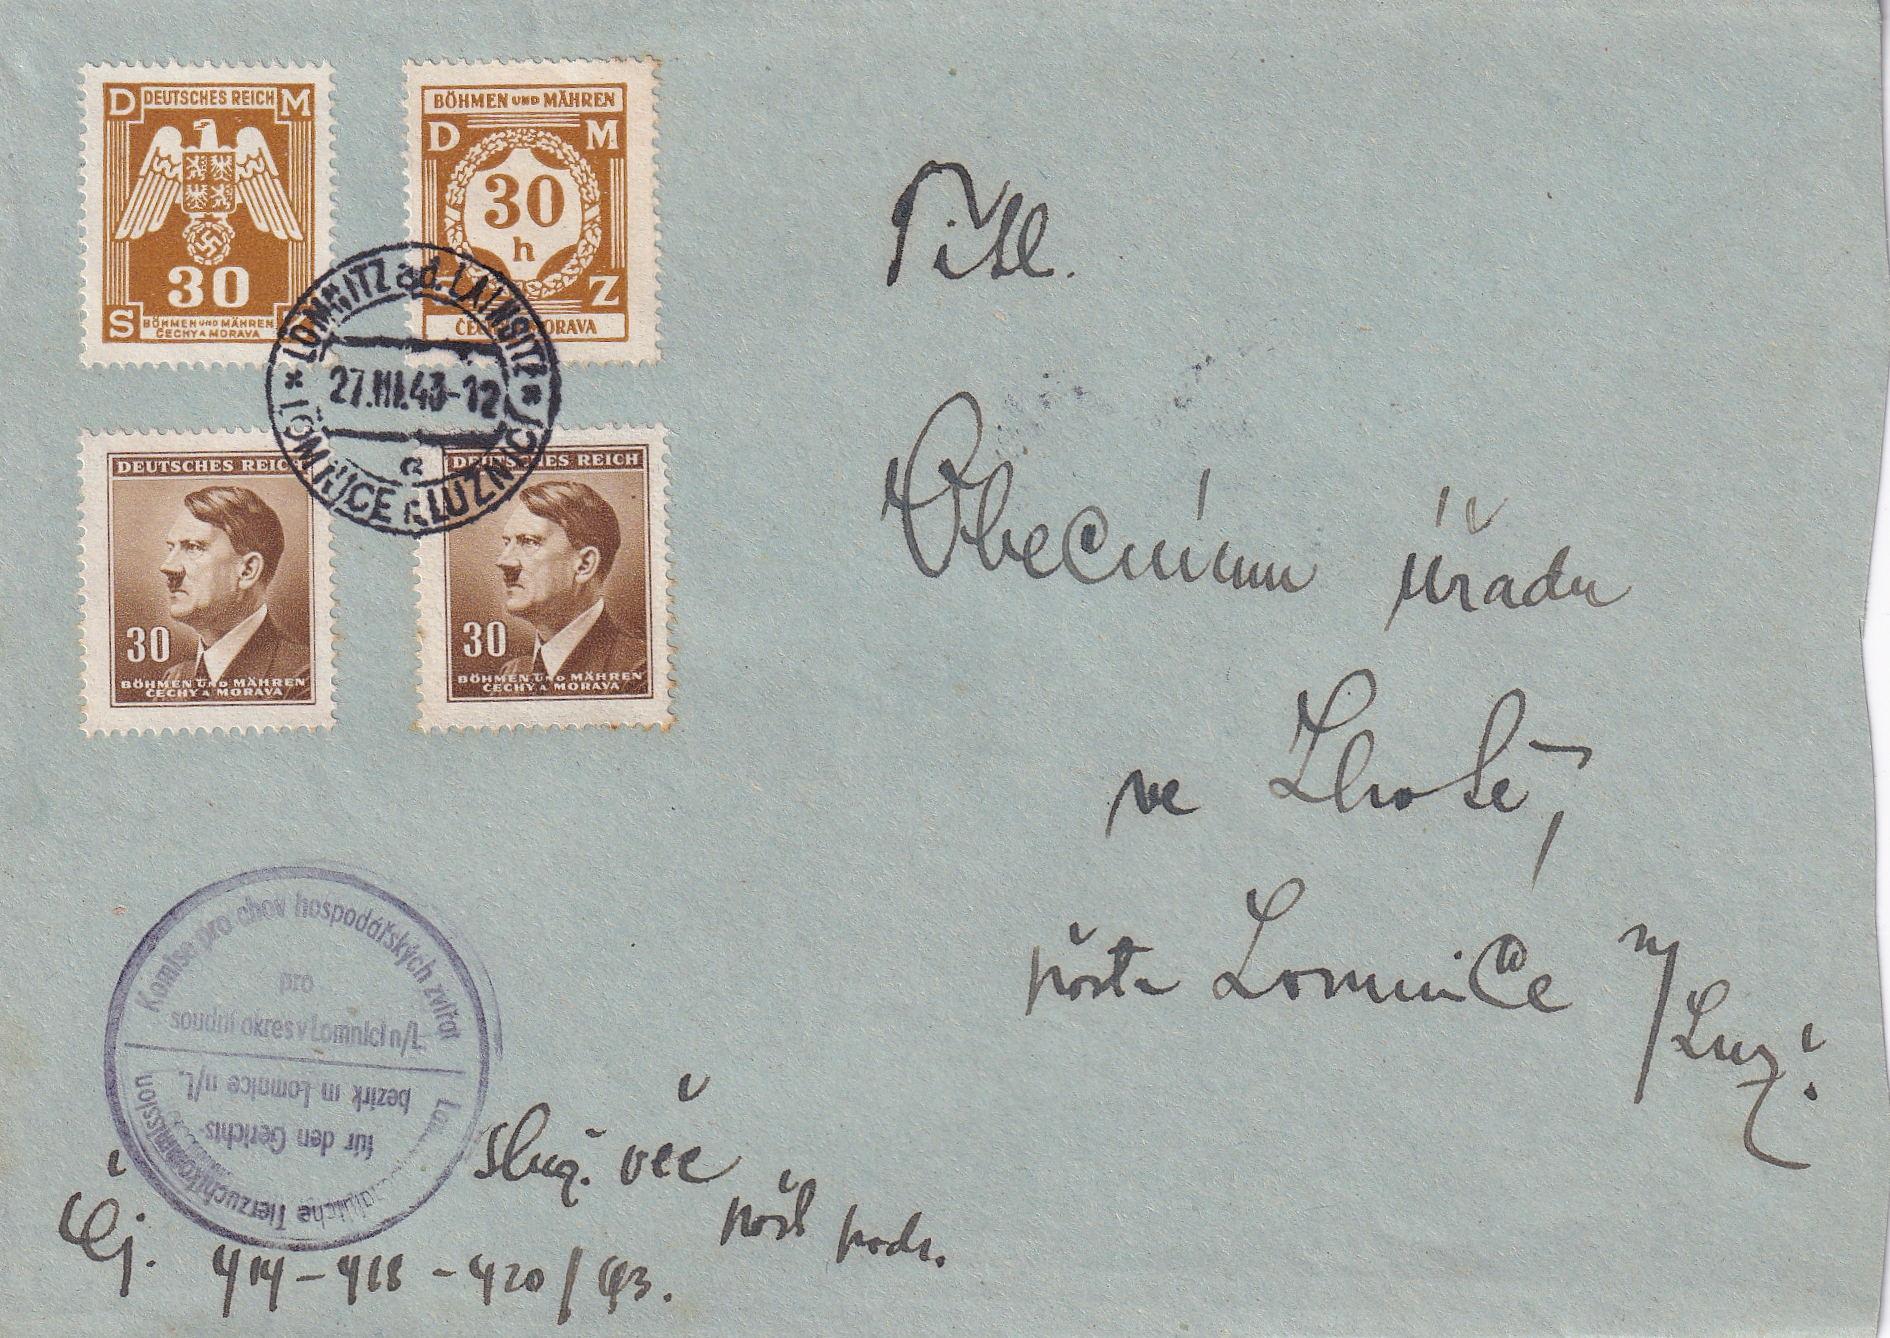 D DEUTSCHES REICH M
30
S BÖHMEN UND MÄHREN
ČECHY A MORAVA
BÖHMEN UND MÄHREN
D M
30
h
Z
ČECHY A MORAVA
LOMNITZ ad. LAINSITZ
27.III.43-12
a
LOMNICE n. LUŽNICÍ
DEUTSCHES REICH
30
BÖHMEN UND MÄHREN
ČECHY A MORAVA
DEUTSCHES REICH
30
BÖHMEN UND MÄHREN
ČECHY A MORAVA
Titl.
Obecnímu úřadu
ve Lhotě,
pošta Lomnice n/Luž.
Komise pro chov hospodářských zvířat
pro
soudní okres v Lomnici n/L.
Tierzuchtkommission
für den Gerichts-
bezirk in Lomnice n/L.
služ. věc
pošt
Čj. 414-418-420/43.